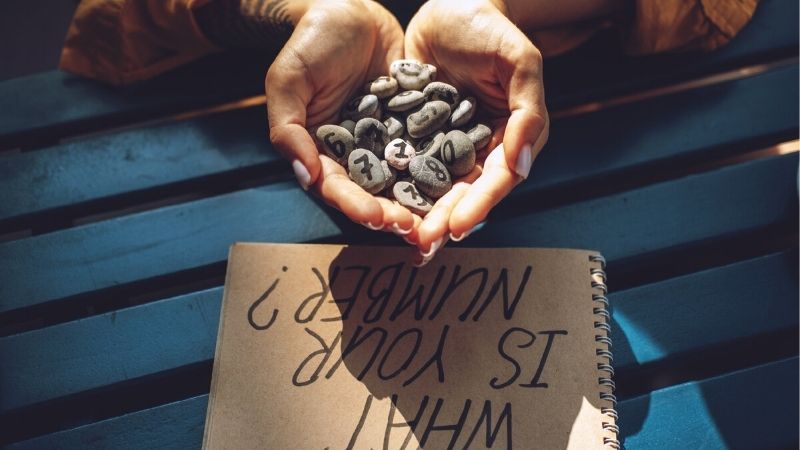 WHAT
IS YOUR
NUMBER?
6
7
1
0
7
8